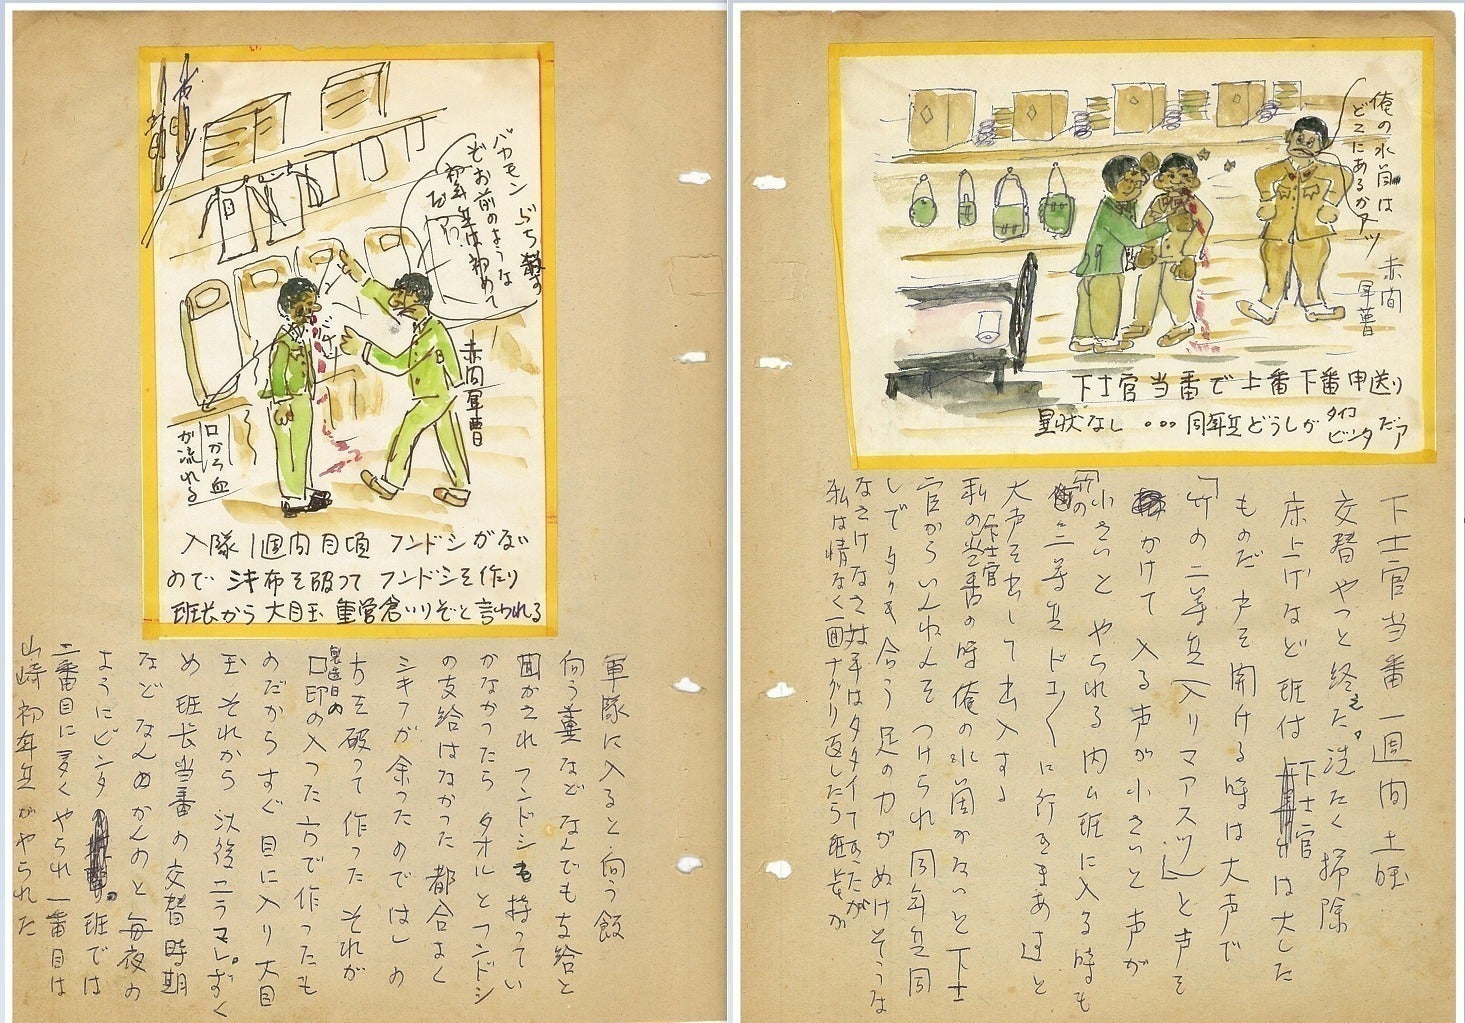 バカモン ぶち殺す
ぞお前のような
初年兵は初めて
だ
赤間軍曹
口から血
が流れる
入隊1週間目頃 フンドシがない
ので シキ布を破って フンドシを作り
班長から大目玉 重営倉いりぞと言われる
軍隊に入ると向う飯
向う糞などなんでも支給と
聞かされ フンドシも持ってい
かなかったら タオルとフンドシ
の支給はなかった 都合よく
シキフが余ったのではしの
方を破って作った それが
製造日の
口印の入った方で作ったも
のだからすぐ目に入り大目
玉 それから以後ニラマレ。ずく
め 班長当番の交替時期
など なんぬかんのと毎夜の
ようにビンタ 班では
二番目に多くやられ 一番目は
山崎初年兵がやられた
俺の水筒は
どこにあるかアッ
赤間
軍曹
下士官当番で上番下番申送り
異状なし ・・・同年兵どうしが タイコ
ビンタだア
下士官当番一週間土曜
交替やっと終えた。洗たく掃除
床上げなど班は 下士官 は大した
ものだ 戸を開ける時は大声で
「竹の二等兵入リマアスッ」と声を
かけて 入る声が小さいと声が
小さいと やられる 内ム班に入る時も
「竹の二等兵ドコくに行きまあすと
大声を出して出入する
私の 下士官 当番の時 俺の水筒がないと下士
官からいんねんをつけられ 同年兵同
しでタタき合う 足の力がぬけそうな
なさけなさ 対手はタタイてきたが
私は情なく一回ナグリ返したら班長が